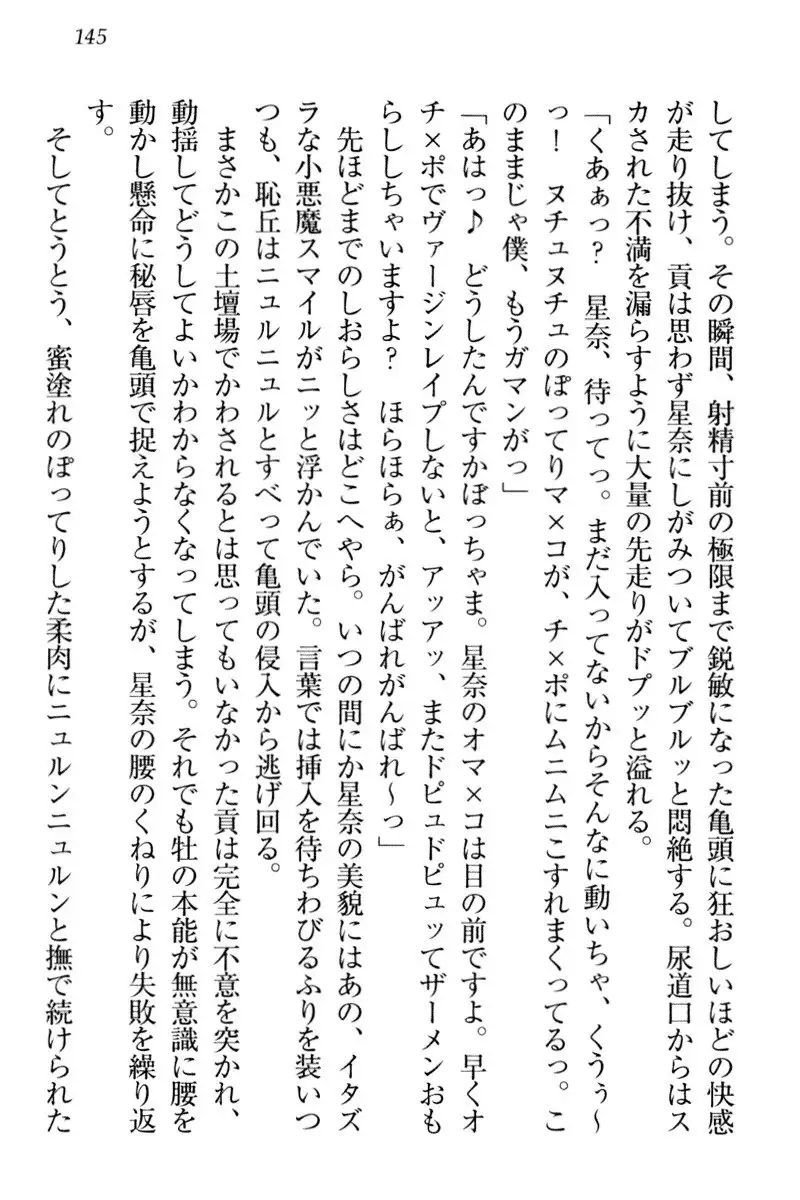 145
してしまう。その瞬間、射精寸前の極限まで鋭敏になった亀頭に狂おしいほどの快感
が走り抜け、貢は思わず星奈にしがみついてブルブルッと悶絶する。尿道口からはス
カされた不満を漏らすように大量の先走りがドプッと溢れる。
「くあぁっ？　星奈、待ってっ。まだ入ってないからそんなに動いちゃ、くうぅ〜
っ！　ヌチュヌチュのぽってりマ×コが、チ×ポにムニムニこすれまくってるっ。こ
のままじゃ僕、もうガマンがっ」
「あはっ♪　どうしたんですかぼっちゃま。星奈のオマ×コは目の前ですよ。早くオ
チ×ポでヴァージンレイプしないと、アッアッ、またドピュドピュッてザーメンおも
らししちゃいますよ？　ほらほらぁ、がんばれがんばれ〜っ」
先ほどまでのしおらしさはどこへやら。いつの間にか星奈の美貌にはあの、イタズ
ラな小悪魔スマイルがニッと浮かんでいた。言葉では挿入を待ちわびるふりを装いつ
つも、恥丘はニュルニュルとすべって亀頭の侵入から逃げ回る。
まさかこの土壇場でかわされるとは思ってもいなかった貢は完全に不意を突かれ、
動揺してどうしてよいかわからなくなってしまう。それでも牡の本能が無意識に腰を
動かし懸命に秘唇を亀頭で捉えようとするが、星奈の腰のくねりにより失敗を繰り返
す。
そしてとうとう、蜜塗れのぽってりした柔肉にニュルンニュルンと撫で続けられた